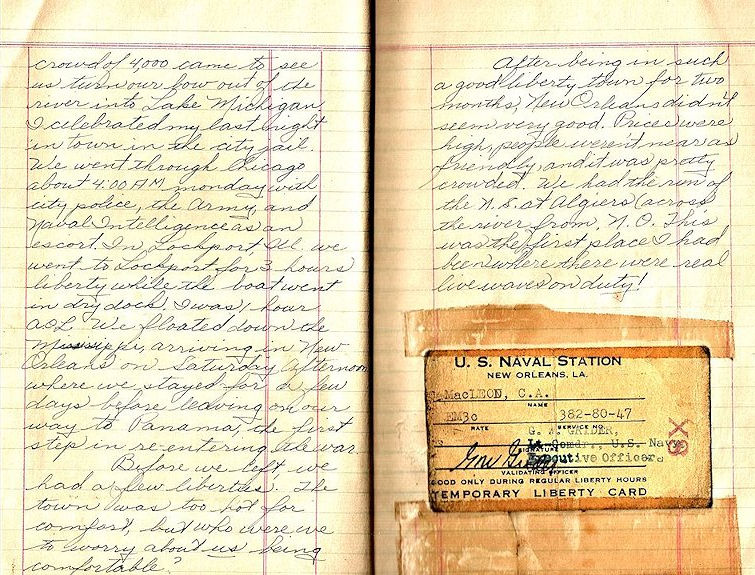 crowd of 4,000 came to see
us turn our bow out of the
river into Lake Michigan
I celebrated my last night
in town in the city jail.
We went through Chicago
about 4:00 AM monday with
city police, the Army, and
Naval Intelligence as an
escort. In Lockport Ill. we
went to Lockport for 3 hours
liberty while the boat went
in dry dock! I was 1 hour
AOL. We floated down the
arriving in New
Orleans on Saturday afternoon
where we stayed for a few
days before leaving on our
way to Panama, the first
step in re-entering the war.
Before we left we
had a few liberties. The
town was too hot for
comfort, but who were we
to worry about us being
comfortable?
After being in such
a good liberty town for two
months, New Orleans didn't
seem very good. Prices were
high, people weren't near as
friendly, and it was pretty
crowded. We had the run of
the N.S. at Algiers (across
the river from N.O. This
was the first place I had
been where there were real
live waves on duty!
U. S. NAVAL STATION
NEW ORLEANS, LA.
MacLEON, C.A.
NAME
EM3c 382-80-47
RATE SERVICE NO.
G. W. GRIDER,
Lt. Comdr., U.S. Navy
SIGNATURE
Executive Officer
VALIDATING OFFICER
GOOD ONLY DURING REGULAR LIBERTY HOURS
TEMPORARY LIBERTY CARD